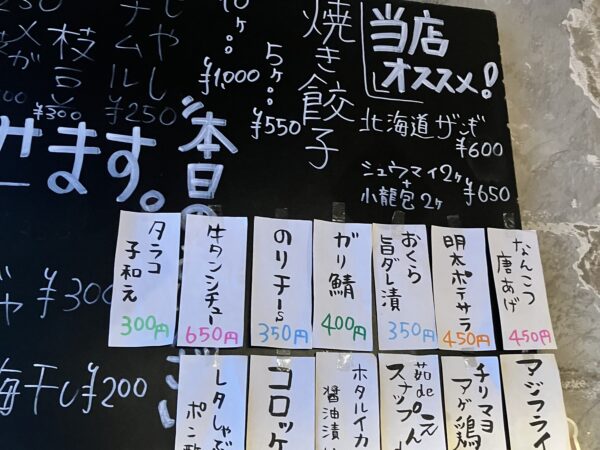 当店
オススメ!
北海道ザンギ
¥600
シュウマイ2ヶ
+
小龍包2ヶ
¥650
焼き餃子
10ヶ
¥1,000
5ヶ
¥550
枝豆
¥300
¥250
本日の
せます。
¥300
梅干し ¥200
なんこつ
唐あげ
450円
明太ポテサラ
450円
おくら
旨ダレ漬
350円
ガリ鯖
400円
のりチーs
350円
牛タンシチュー
650円
タラコ
子和え
300円
マジフライ
チリマヨ
アゲ鶏
茹de
スナップえん
ホタルイカ
醤油漬
コロッケ
レタしゃぶ
ポン酢